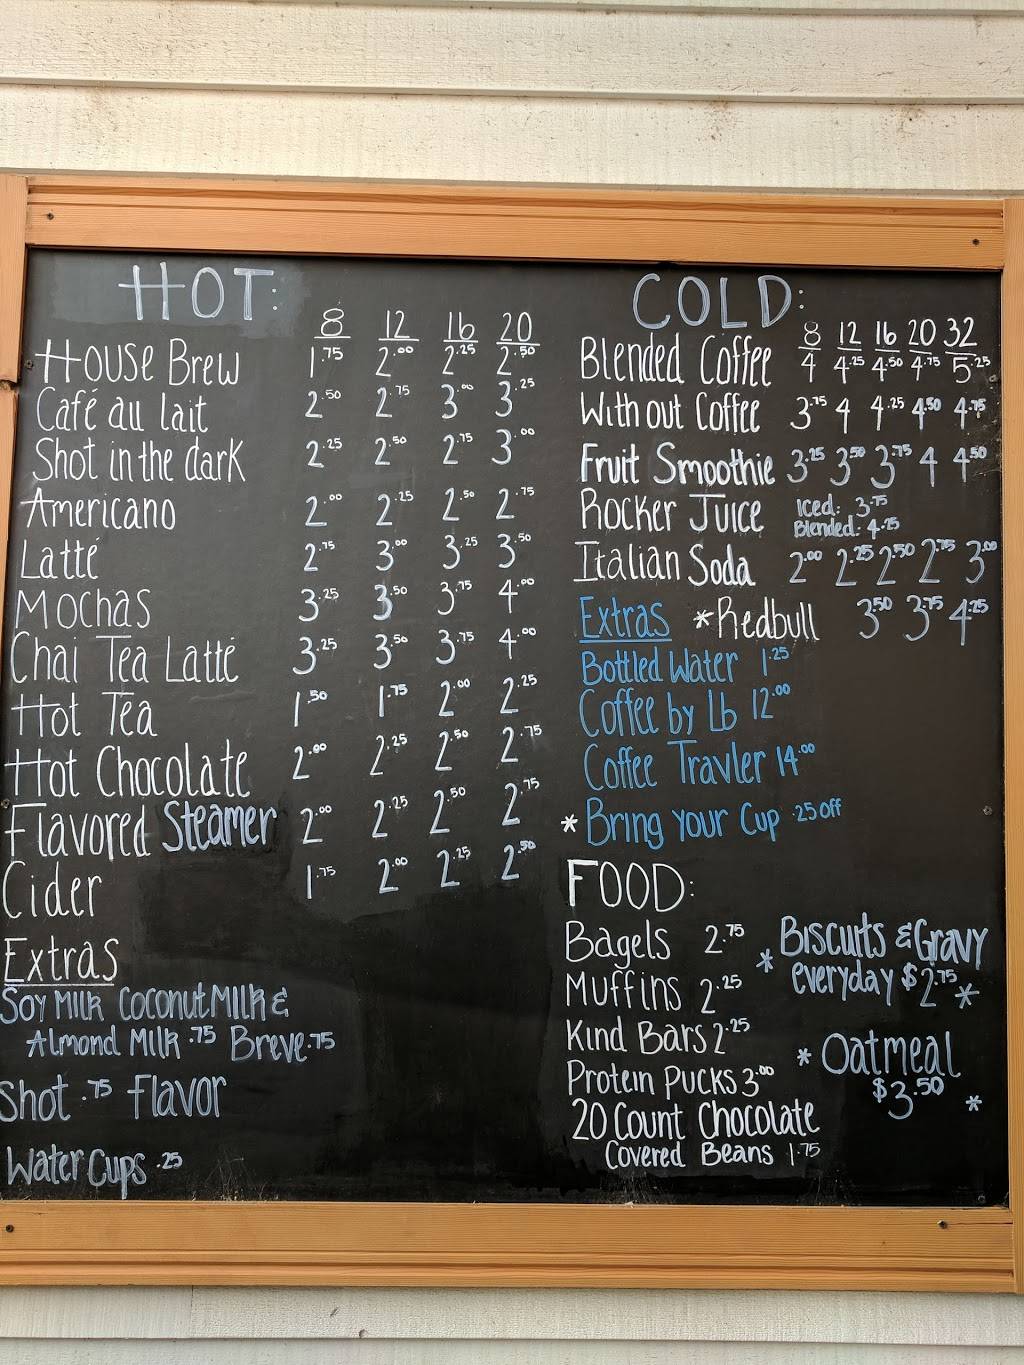 HOT:
8 12 16 20
House Brew 1.75 2.00 2.25 2.50
Café au lait 2.50 2.75 3.00 3.25
Shot in the dark 2.25 2.50 2.75 3.00
Americano 2.00 2.25 2.50 2.75
Latté 2.75 3.00 3.25 3.50
Mochas 3.25 3.50 3.75 4.00
Chai Tea Latté 3.25 3.50 3.75 4.00
Hot Tea 1.50 1.75 2.00 2.25
Hot Chocolate 2.00 2.25 2.50 2.75
Flavored Steamer 2.00 2.25 2.50 2.75
Cider 1.75 2.00 2.25 2.50
Extras
Soy Milk Coconut Milk &
Almond Milk .75 Breve .75
Shot .75 Flavor
Water Cups .25
COLD:
8 12 16 20 32
Blended Coffee 4 4.25 4.50 4.75 5.25
Without Coffee 3.75 4 4.25 4.50 4.75
Fruit Smoothie 3.25 3.50 3.75 4 4.50
Rocker Juice Iced: 3.75
Blended: 4.25
Italian Soda 2.00 2.25 2.50 2.75 3.00
Extras *Redbull 3.50 3.75 4.25
Bottled Water 1.25
Coffee by Lb 12.00
Coffee Travler 14.00
* Bring your Cup .25 off
FOOD:
Bagels 2.75
Muffins 2.25
Kind Bars 2.25
Protein Pucks 3.00
20 Count Chocolate
Covered Beans 1.75
* Biscuits & Gravy
everyday $2.75 *
* Oatmeal
$3.50 *